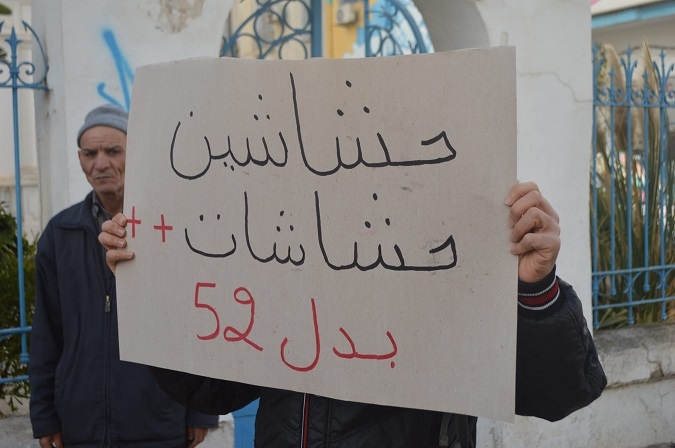 حشاشين
حشاشات ++
بدل 52